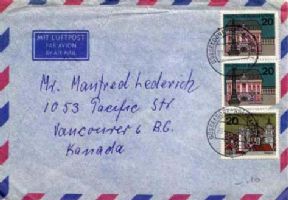 MIT LUFTPOST
PAR AVION
BY AIR MAIL
20
20
20
Mr. Manfred Lederich
1053 Pacific Str.
Vancouver 6 B.C.
Kanada